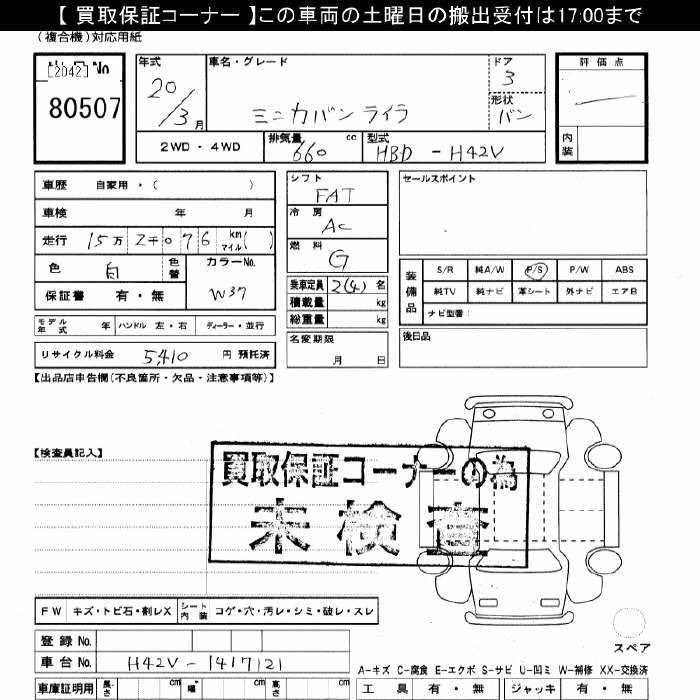 【 買取保証コーナー 】この車両の土曜日の搬出受付は17:00まで
(複合機)対応用紙
[2042] No
80507
年式
20/3月
車名・グレード
ミニカバン ライラ
ドア
3
形状
バン
評価点
内装
2WD・4WD
排気量 660 cc
型式 HBD - H42V
車歴 自家用・( )
車検 年 月
走行 15万 2千076 km マイル( )
色 白 色替
カラーNo. W37
保証書 有・無
モデル年式 年 ハンドル 左・右 ディーラー・並行
リサイクル料金 5,410 円 預託済
シフト
FAT
冷房
AC
燃料
G
乗車定員 2(4) 名
積載量 kg
総重量 kg
名変期限
月 日
セールスポイント
装備品
S/R 純A/W P/S P/W ABS
純TV 純ナビ 革シート 外ナビ エアB
ナビ型番:
後日品
【出品店申告欄(不良箇所・欠品・注意事項等)】
【検査員記入】
買取保証コーナーの為
未検査
FW キズ・トビ石・割レX シート内装 コゲ・穴・汚レ・シミ・破レ・スレ
登録No.
車台No. H42V-1417121
車庫証明用 長さ cm 幅 cm 高さ cm
スペア
A-キズ C-腐食 E-エクボ S-サビ U-凹ミ W-補修 XX-交換済
工具 有・無 ジャッキ 有・無